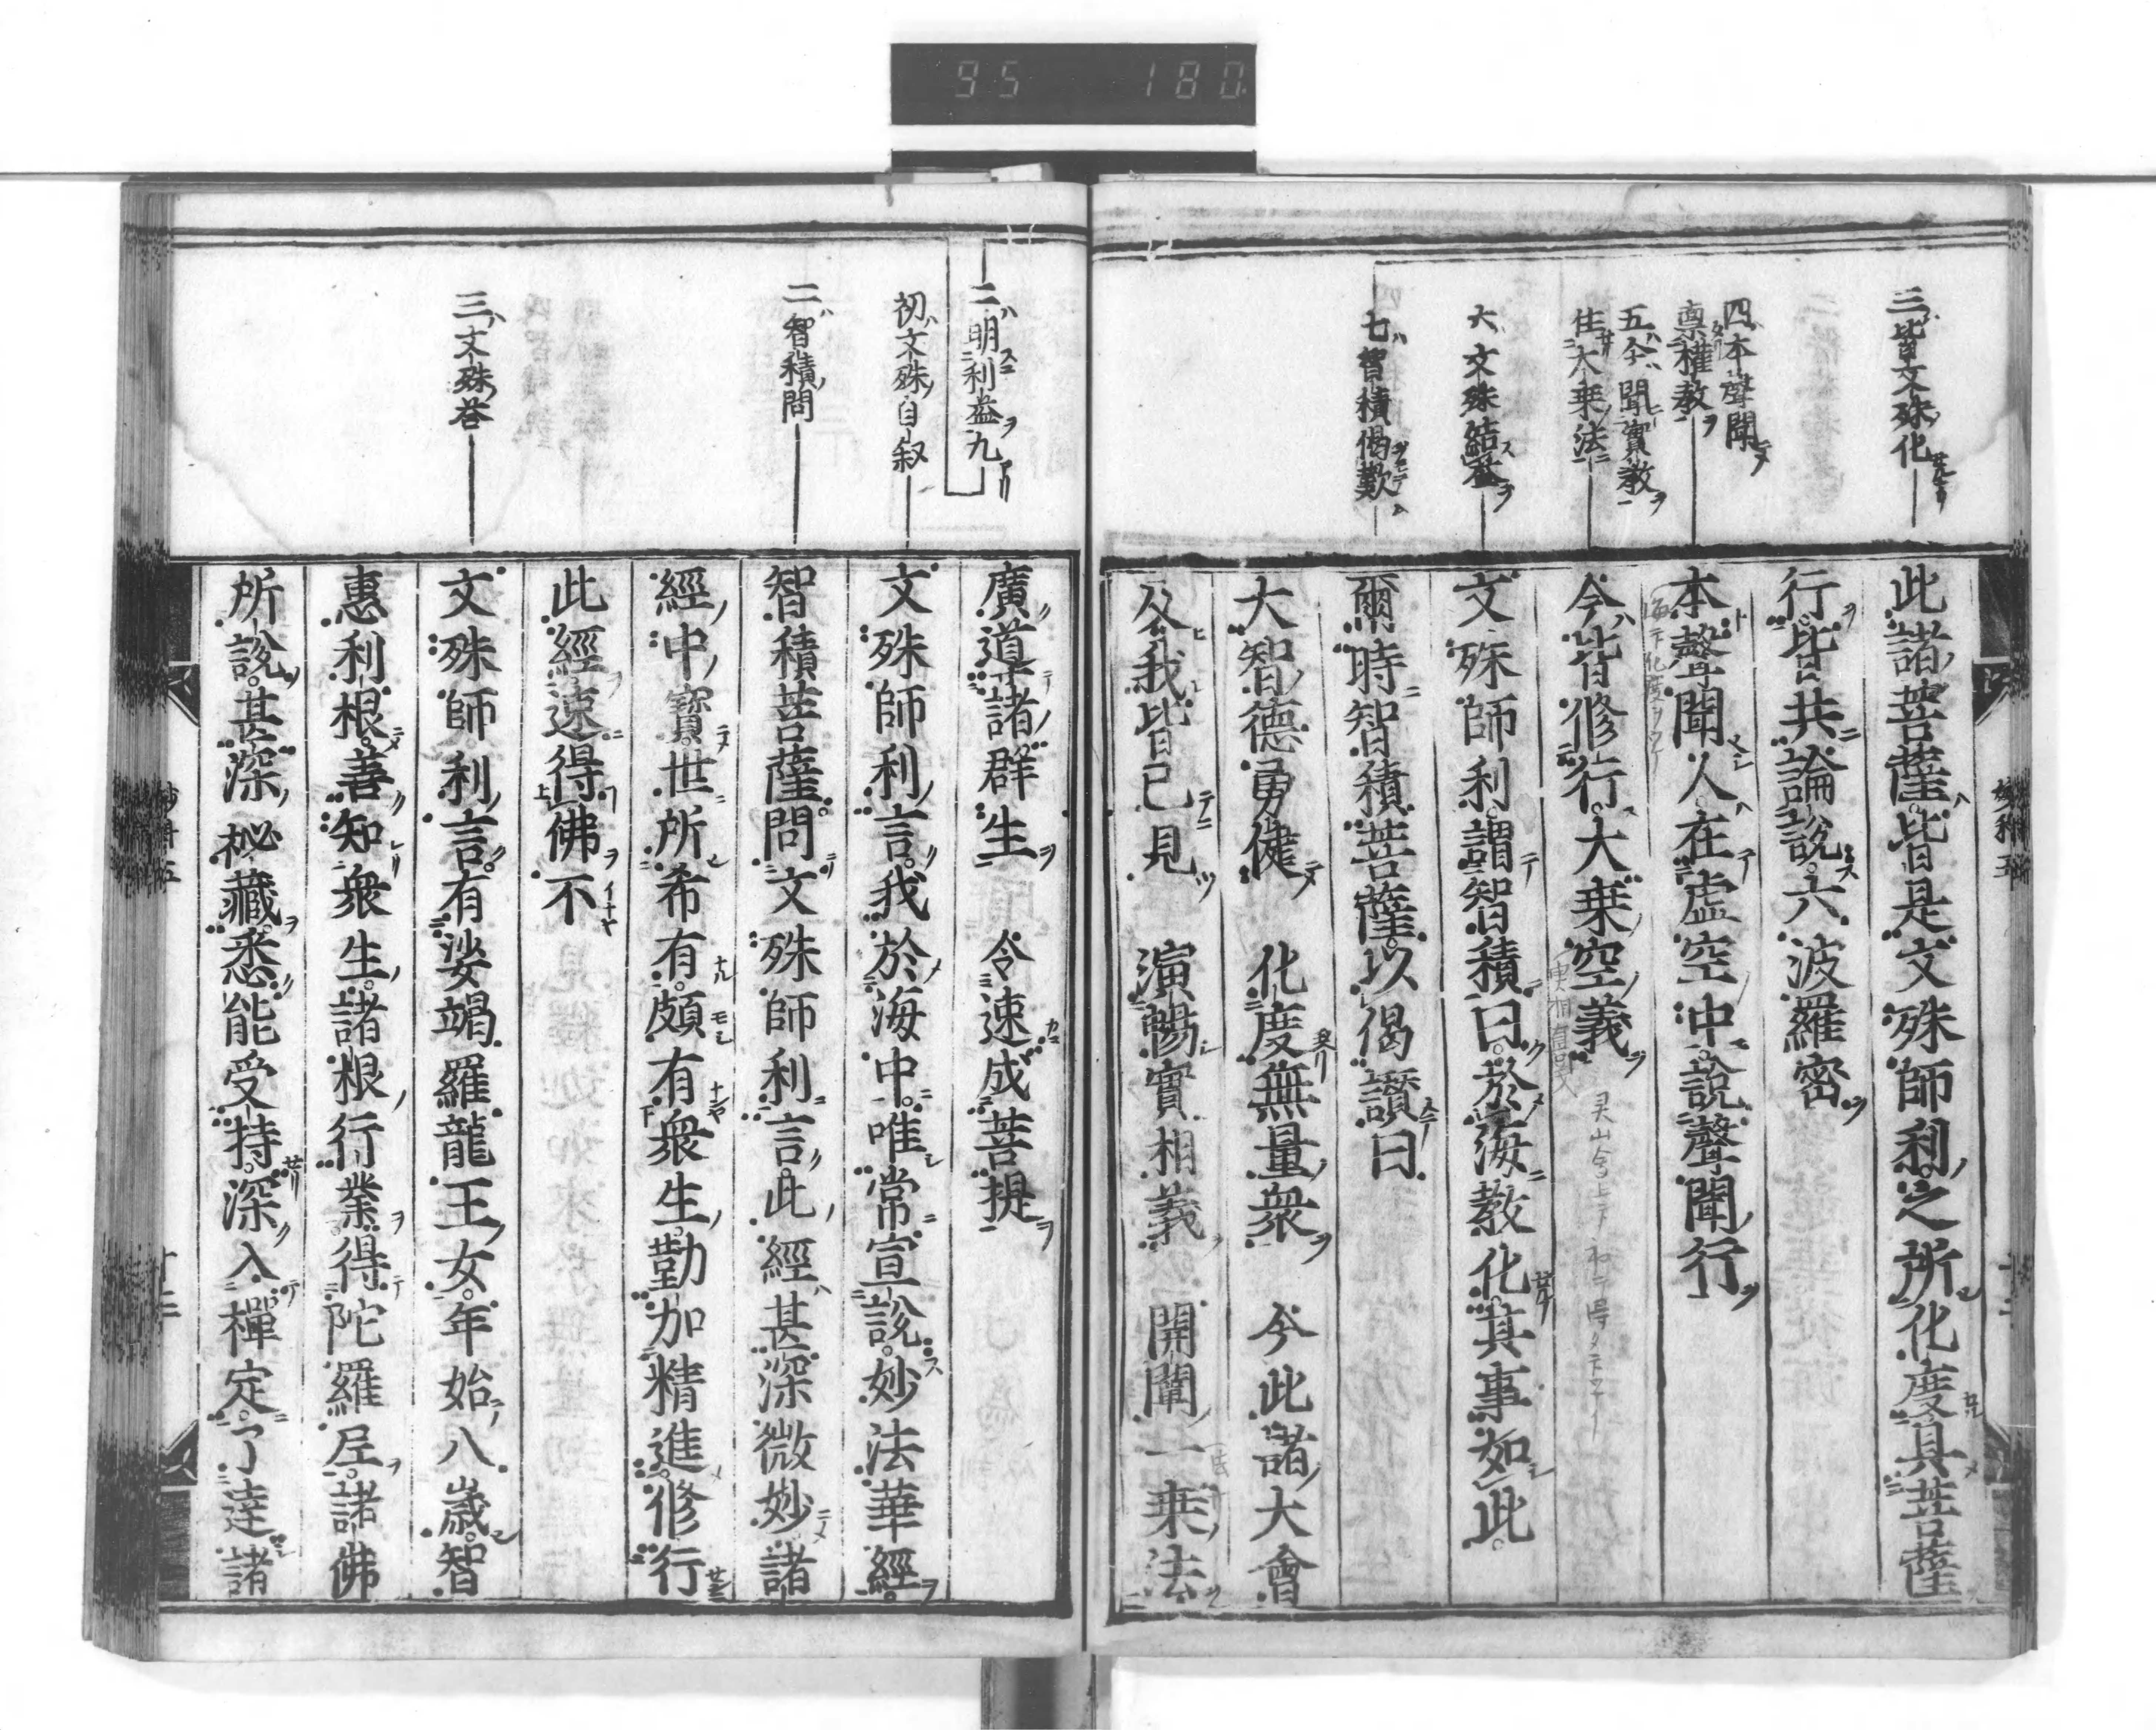 95 180
三皆文殊化
四本聲聞
稟權教
五今聞實教
住大乗法
六文殊結荅
七智積偈歎
此諸菩薩皆是文殊師利之所化度具菩薩
行皆共論說六波羅蜜
本聲聞人在虚空中說聲聞行
今皆修行大乗空義
文殊師利謂智積曰於海教化其事如此
爾時智積菩薩以偈讚曰
大智德勇健　化度無量衆　今此諸大會
及我皆已見　演暢實相義　開闡一乗法
二明利益九
初文殊自叙
二智積問
三文殊荅
廣導諸群生　令速成菩提
文殊師利言我於海中唯常宣說妙法華經
智積菩薩問文殊師利言此經甚深微妙諸
經中寶世所希有頗有衆生勤加精進修行
此經速得佛不
文殊師利言有娑竭羅龍王女年始八歳智
惠利根善知衆生諸根行業得陀羅尼諸佛
所說甚深秘藏悉能受持深入禪定了達諸